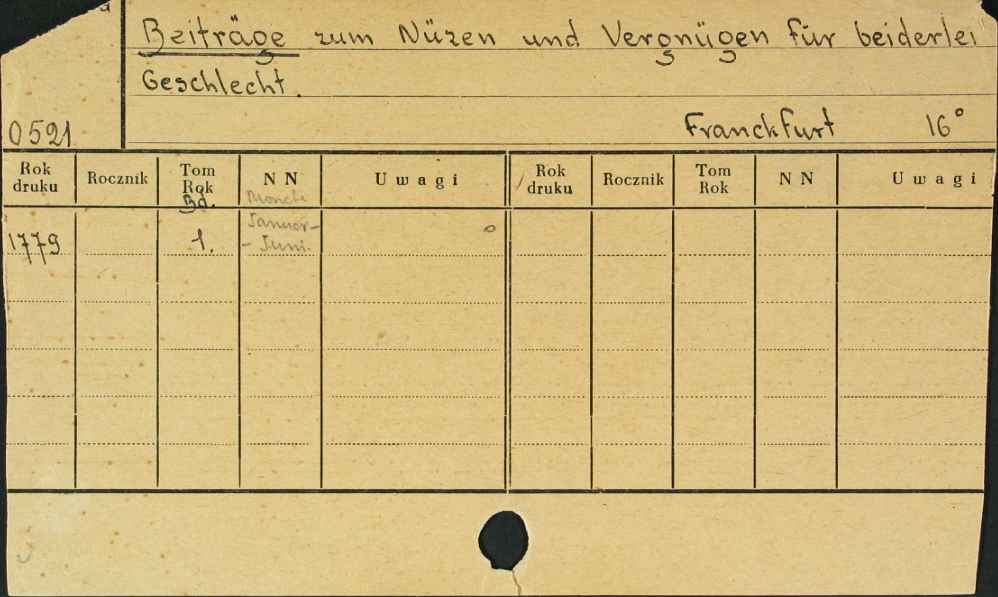 Beiträge zum Nüzen und Vergnügen für beiderlei
Geschlecht.
0521 Franckfurt 16°
Rok druku Rocznik Tom Rok NN Uwagi Rok druku Rocznik Tom Rok NN Uwagi
Bd. Monate
Januar-
1779 1. - Juni.